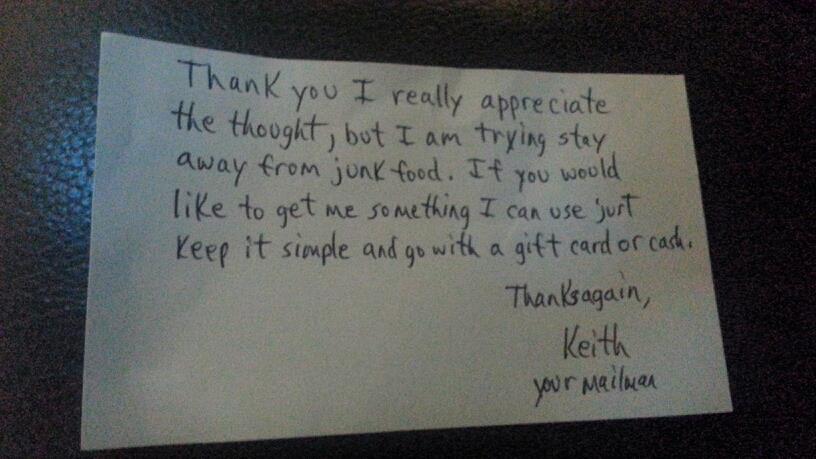 Thank you I really appreciate
the thought, but I am trying stay
away from junk food. If you would
like to get me something I can use just
keep it simple and go with a gift card or cash.
Thanks again,
Keith
your mailman